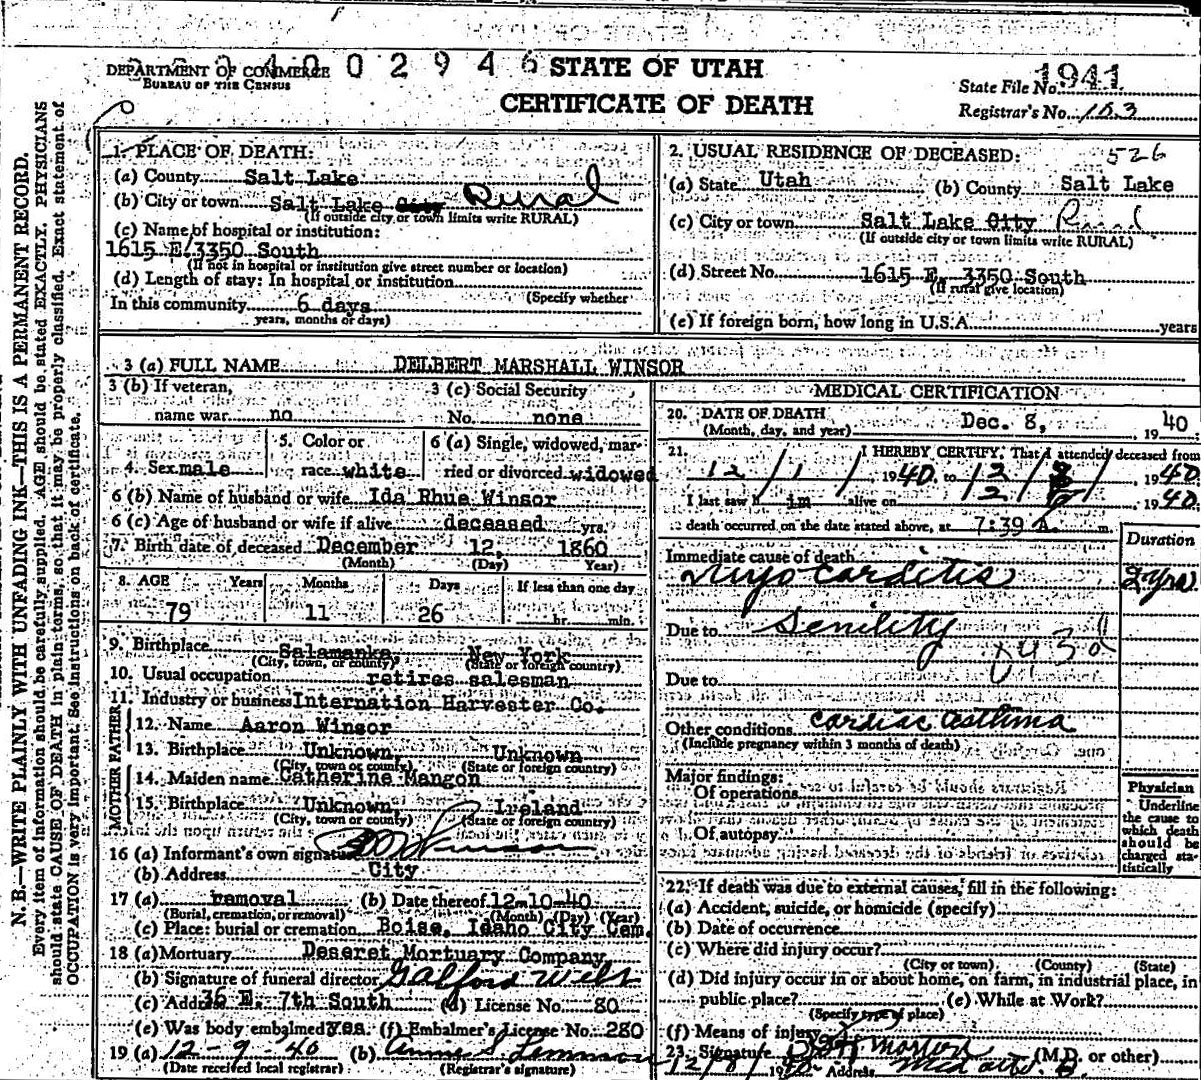 DEPARTMENT OF COMMERCE
BUREAU OF THE CENSUS
0 0 2 9 4 6
STATE OF UTAH
CERTIFICATE OF DEATH
State File No. 1941
Registrar's No. 153
N. B.—WRITE PLAINLY WITH UNFADING INK—THIS IS A PERMANENT RECORD.
Every item of information should be carefully supplied. AGE should be stated EXACTLY. PHYSICIANS
should state CAUSE OF DEATH in plain terms, so that it may be properly classified. Exact statement of
OCCUPATION is very important. See instructions on back of certificate.
1. PLACE OF DEATH:
(a) County Salt Lake
(b) City or town Salt Lake City Rural
(If outside city or town limits write RURAL)
(c) Name of hospital or institution:
1615 E. 3350 South
(If not in hospital or institution give street number or location)
(d) Length of stay: In hospital or institution
(Specify whether
In this community 6 days
years, months or days)
2. USUAL RESIDENCE OF DECEASED: 526
(a) State Utah (b) County Salt Lake
(c) City or town Salt Lake City Rural
(If outside city or town limits write RURAL)
(d) Street No. 1615 E. 3350 South
(If rural give location)
(e) If foreign born, how long in U.S.A. years
3 (a) FULL NAME DELBERT MARSHALL WINSOR
3 (b) If veteran,
name war no
3 (c) Social Security
No. none
4. Sex male
5. Color or
race white
6 (a) Single, widowed, mar-
ried or divorced widowed
6 (b) Name of husband or wife Ida Rhue Winsor
6 (c) Age of husband or wife if alive deceased yrs.
7. Birth date of deceased December 12, 1860
(Month) (Day) Year)
8. AGE Years Months Days If less than one day
79 11 26 hr. min.
9. Birthplace Salamanka, New York
(City, town, or county) (State or foreign country)
10. Usual occupation retires salesman
11. Industry or business Internation Harvester Co.
FATHER
12. Name Aaron Winsor
13. Birthplace Unknown Unknown
(City, town or county) (State or foreign country)
MOTHER
14. Maiden name Catherine Mangon
15. Birthplace Unknown Ireland
(City, town or county) (State or foreign country)
16 (a) Informant's own signature Winsor
(b) Address City
17 (a) removal (b) Date thereof 12-10-40
(Burial, cremation, or removal) (Month) (Day) (Year)
(c) Place: burial or cremation Boise, Idaho City Cem.
18 (a) Mortuary Deseret Mortuary Company
(b) Signature of funeral director
(c) Address 36 E. 7th South (d) License No. 80
(e) Was body embalmed yes. (f) Embalmer's License No. 280
19 (a) 12-9-40 (b) Annie S. Lemmon
(Date received local registrar) (Registrar's signature)
MEDICAL CERTIFICATION
20. DATE OF DEATH
(Month, day, and year) Dec. 8, , 19 40
21. I HEREBY CERTIFY, That I attended deceased from
12/1/, 1940, to 12/8/, 1940
I last saw h im alive on , 1940
death occurred on the date stated above, at 7:39 A. m.
Duration
Immediate cause of death
Myocarditis 2 yrs
Due to Senility
Due to
Other conditions cardiac asthma
(Include pregnancy within 3 months of death)
Major findings:
Of operations
Of autopsy
Physician
Underline
the cause to
which death
should be
charged sta-
tistically
22. If death was due to external causes, fill in the following:
(a) Accident, suicide, or homicide (specify)
(b) Date of occurrence
(c) Where did injury occur?
(City or town) (County) (State)
(d) Did injury occur in or about home, on farm, in industrial place, in
public place? (e) While at Work?
(Specify type of place)
(f) Means of injury
23. Signature (M.D. or other)
12/8/ Address